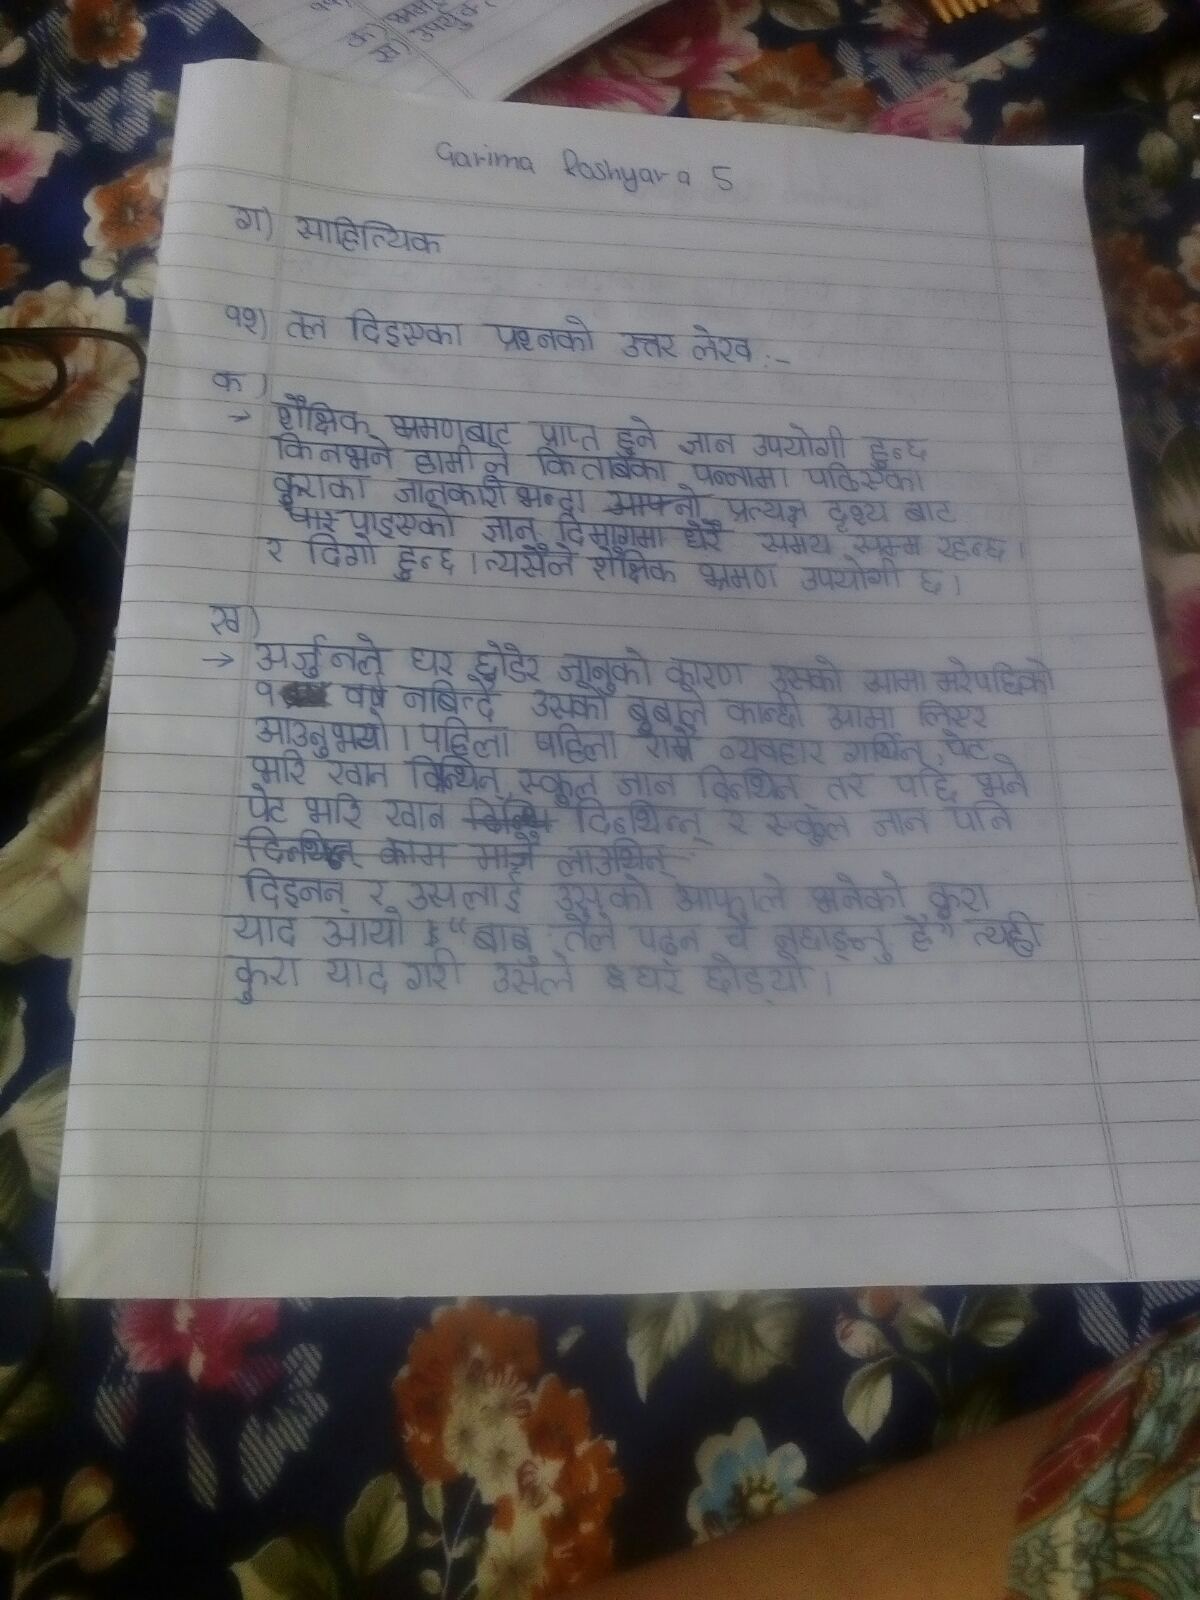 Garima Roshyara 5
ग) साहित्यिक
११) तल दिइएका प्रश्नको उत्तर लेख :-
क)
→ शैक्षिक भ्रमणबाट प्राप्त हुने ज्ञान उपयोगी हुन्छ
किनभने हामीले किताबका पन्नामा पढिएका
कुराका जानकारी भन्दा आफ्नो प्रत्यक्ष दृश्य बाट
पाइएको ज्ञान दिमागमा धेरै समय सम्म रहन्छ।
र दिगो हुन्छ।त्यसैले शैक्षिक भ्रमण उपयोगी छ।
ख)
→ अर्जुनले घर छोडेर जानुको कारण उसको आमा मरेपछिको
१ वर्ष नबित्दै उसको बुबाले कान्छी आमा लिएर
आउनुभयो। पहिला पहिला राम्रो व्यवहार गर्थिन्, पेट
भरि खान दिन्थिन्, स्कुल जान दिन्थिन् तर पछि भने
पेट भरि खान दिन्थिन्न् र स्कुल जान पनि
दिन्थिन् काम मात्रै लाउथिन्
दिइनन् र उसलाई उसको आमाले भनेको कुरा
याद आयो "बाबु तैंले पढ्न चै नछाड्नु है" त्यही
कुरा याद गरी उसले घर छोड्यो।